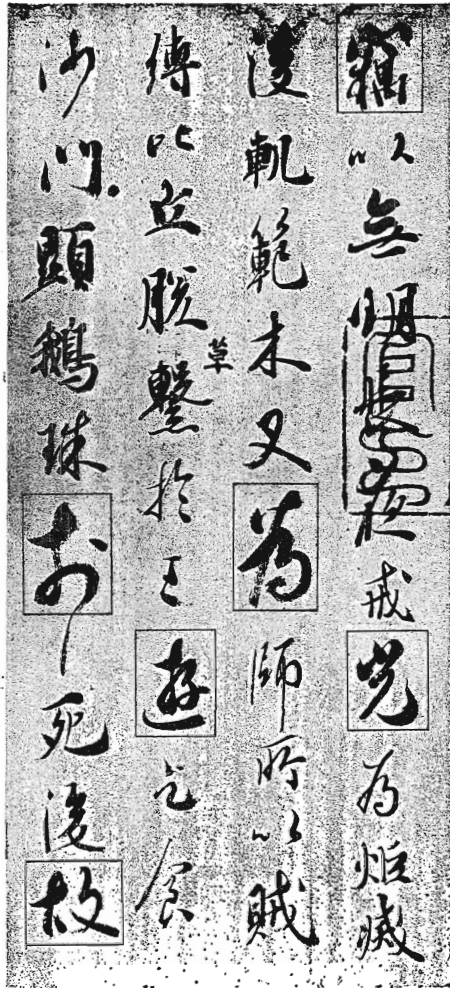 竊以無明長夜戒光為炬滅
後軌範木叉為師所以賊
縛比丘脱草繋於王遊乞食
沙門顯鵝珠於死後故